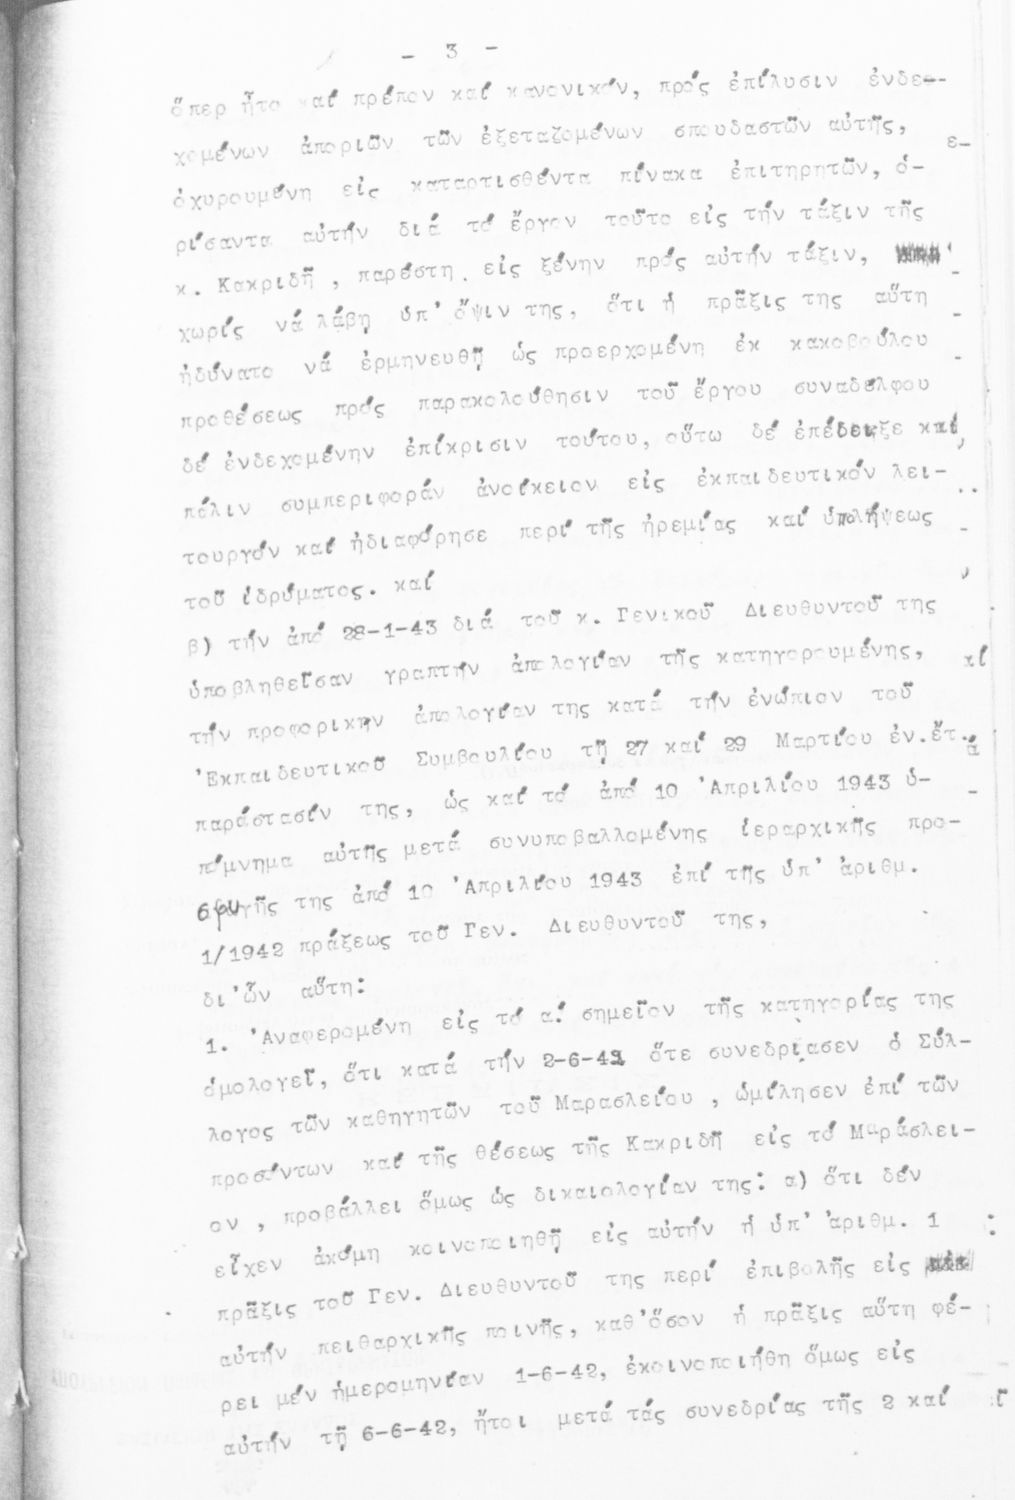 - 3 -
ὅπερ ἦτο καί πρέπον καί κανονικόν, πρός ἐπίλυσιν ἐνδε-
χομένων ἀποριῶν τῶν ἐξεταζομένων σπουδαστῶν αὐτῆς,
ὀχυρουμένη εἰς καταρτισθέντα πίνακα ἐπιτηρητῶν, ὁ-
ρίσαντα αὐτήν διά τό ἔργον τοῦτο εἰς τήν τάξιν τῆς
κ. Κακριδῆ , παρέστη εἰς ξένην πρός αὐτήν τάξιν,
χωρίς νά λάβῃ ὑπ' ὄψιν της, ὅτι ἡ πρᾶξις της αὕτη
ἠδύνατο νά ἑρμηνευθῇ ὡς προερχομένη ἐκ κακοβούλου
προθέσεως πρός παρακολούθησιν τοῦ ἔργου συναδέλφου
δέ ἐνδεχομένην ἐπίκρισιν τούτου, οὕτω δέ ἐπέδειξε καί
πάλιν συμπεριφοράν ἀνοίκειον εἰς ἐκπαιδευτικόν λει-
τουργόν καί ἠδιαφόρησε περί τῆς ἠρεμίας καί ὑπολήψεως
τοῦ ἱδρύματος. καί
β) τήν ἀπό 28-1-43 διά τοῦ κ. Γενικοῦ Διευθυντοῦ της
ὑποβληθεῖσαν γραπτήν ἀπολογίαν τῆς κατηγορουμένης,
τήν προφορικήν ἀπολογίαν της κατά τήν ἐνώπιον τοῦ
'Εκπαιδευτικοῦ Συμβουλίου τῇ 27 καί 29 Μαρτίου ἐν.ἔτ.
παράστασίν της, ὡς καί τό ἀπό 10 'Απριλίου 1943 ὑ-
πόμνημα αὐτῆς μετά συνυποβαλλομένης ἱεραρχικῆς προ-
σφυγῆς της ἀπό 10 'Απριλίου 1943 ἐπί τῆς ὑπ' ἀριθμ.
1/1942 πράξεως τοῦ Γεν. Διευθυντοῦ της,
δι'ὧν αὕτη:
1. 'Αναφερομένη εἰς τό α! σημεῖον τῆς κατηγορίας της
ὁμολογεῖ, ὅτι κατά τήν 2-6-42 ὅτε συνεδρίασεν ὁ Σύλ-
λογος τῶν καθηγητῶν τοῦ Μαρασλείου , ὡμίλησεν ἐπί τῶν
προσόντων καί τῆς θέσεως τῆς Κακριδῆ εἰς τό Μαράσλει-
ον , προβάλλει ὅμως ὡς δικαιολογίαν της: α) ὅτι δέν
εἶχεν ἀκόμη κοινοποιηθῆ εἰς αὐτήν ἡ ὑπ' ἀριθμ. 1
πρᾶξις τοῦ Γεν. Διευθυντοῦ της περί ἐπιβολῆς εἰς
αὐτήν πειθαρχικῆς ποινῆς, καθ'ὅσον ἡ πρᾶξις αὕτη φέ-
ρει μέν ἡμερομηνίαν 1-6-42, ἐκοινοποιήθη ὅμως εἰς
αὐτήν τῇ 6-6-42, ἤτοι μετά τάς συνεδρίας τῆς 2 καί